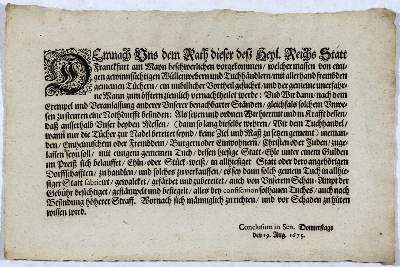 DEmnach Uns dem Rath dieser deß Heyl. Reichs Statt
Franckfurt am Mayn beschwerlichen vorgekommen / welcher massen von eini-
gen gewinnsüchtigen Wüllenwebern und Tuchhändlern / mit allerhand frembden
gemeinen Tüchern / ein unbillicher Vortheil gesuchet / und der gemeine unerfahr-
ne Mann zum öfftern ziemlich vernachtheilet werde: Und Wir dann / nach dem
Exempel und Veranlassung anderer Unserer benachbarter Ständen / gleichfals solchem Unwe-
sen zu steuren eine Nothdurfft befinden: Als setzen und ordnen Wir hiermit und in Krafft dieses /
daß ausserhalb Unser beyden Messen / (dann so lang dieselbe währen / Wir dem Tuchhandel /
wann nur die Tücher zur Nadel bereitet seynd / keine Ziel und Maß zu setzen gemeint) nieman-
den / Einheimischem oder Frembdem / Burgern oder Einwohnern / Christen oder Juden / zuge-
lassen seyn soll / mit einigem gemeinen Tuch / dessen hiesige Statt-Ehle unter einem Gulden
im Preiß sich belaufft / Ehln- oder Stück-weiß / in allhiesiger Statt oder dero angehörigen
Dorffschafften / zu handlen / und solches zu verkauffen / es sey dann solch gemein Tuch in allhie-
siger Statt fabricirt / gewalcket / gefärbet und zubereitet / auch von Unserm Schau-Ampt der
Gebühr besichtiget / gestämpfet und besiegelt / alles bey confiscation sothanen Tuches / auch nach
Befindung höherer Straff. Wornach sich männiglich zu richten / und vor Schaden zu hüten
wissen wird.
Conclusum in Sen. Donnerstags
den 19. Aug. 1675.